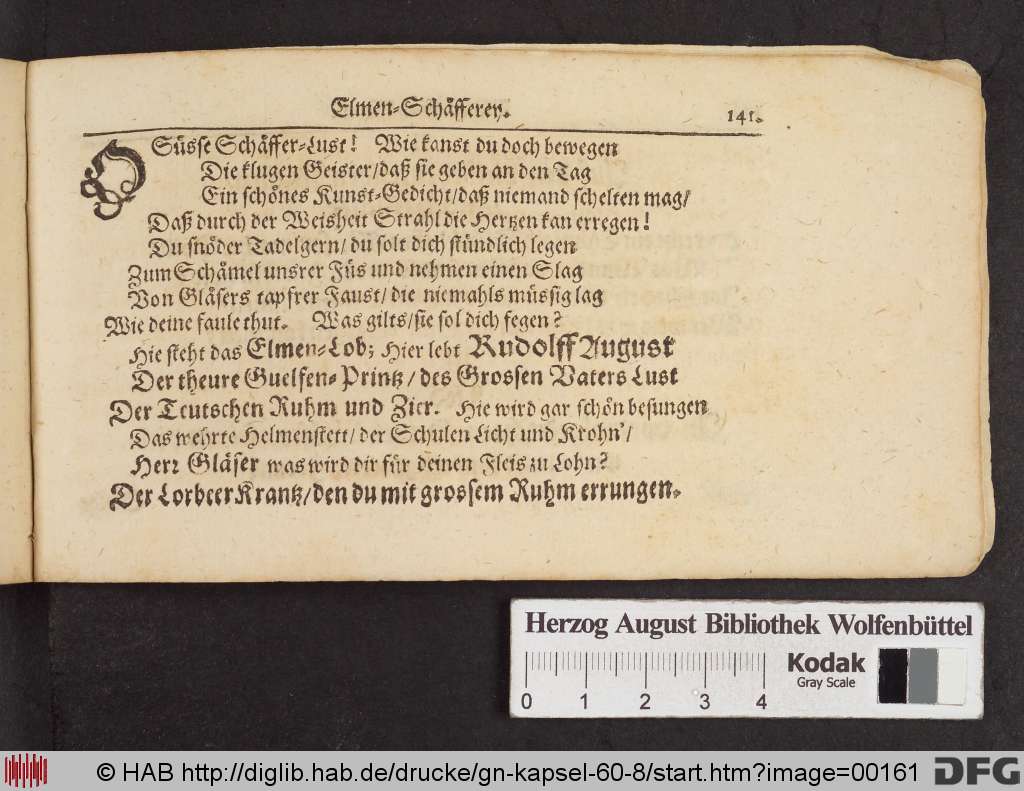 Elmen-Schäfferey. 141.
O Süsse Schäffer-Lust! Wie kanst du doch bewegen
Die klugen Geister/daß sie geben an den Tag
Ein schönes Kunst-Gedicht/daß niemand schelten mag/
Daß durch der Weisheit Strahl die Hertzen kan erregen!
Du snöder Tadelgern/ du solt dich stündlich legen
Zum Schämel unsrer Füs und nehmen einen Slag
Von Gläsers tapfrer Faust/ die niemahls müssig lag
Wie deine faule thut. Was gilts/sie sol dich fegen?
Hie steht das Elmen-Lob; Hier lebt Rudolff August
Der theure Guelfen-Printz/des Grossen Vaters Lust
Der Teutschen Ruhm und Zier. Hie wird gar schön besungen
Das wehrte Helmenstett/ der Schulen Licht und Krohn'/
Herr Gläser was wird dir für deinen Fleis zu Lohn?
Der Lorbeer Krantz/den du mit grossem Ruhm errungen.
Herzog August Bibliothek Wolfenbüttel
Kodak
Gray Scale
0 1 2 3 4
© HAB http://diglib.hab.de/drucke/gn-kapsel-60-8/start.htm?image=00161
DFG